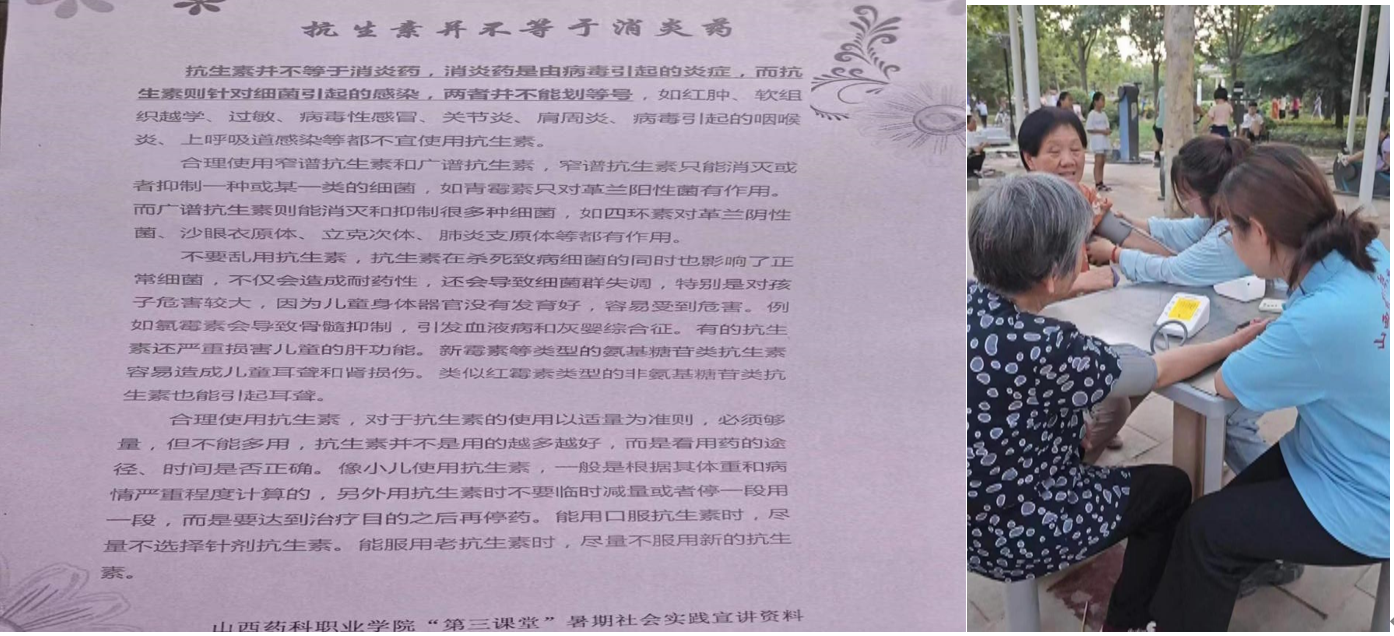 抗生素并不等于消炎药
抗生素并不等于消炎药，消炎药是由病毒引起的炎症，而抗
生素则针对细菌引起的感染，两者并不能划等号，如红肿、软组
织越学、过敏、病毒性感冒、关节炎、肩周炎、病毒引起的咽喉
炎、上呼吸道感染等都不宜使用抗生素。
合理使用窄谱抗生素和广谱抗生素，窄谱抗生素只能消灭或
者抑制一种或某一类的细菌，如青霉素只对革兰阳性菌有作用。
而广谱抗生素则能消灭和抑制很多种细菌，如四环素对革兰阴性
菌、沙眼衣原体、立克次体、肺炎支原体等都有作用。
不要乱用抗生素，抗生素在杀死致病细菌的同时也影响了正
常细菌，不仅会造成耐药性，还会导致细菌群失调，特别是对孩
子危害较大，因为儿童身体器官没有发育好，容易受到危害。例
如氯霉素会导致骨髓抑制，引发血液病和灰婴综合征。有的抗生
素还严重损害儿童的肝功能。新霉素等类型的氨基糖苷类抗生素
容易造成儿童耳聋和肾损伤。类似红霉素类型的非氨基糖苷类抗
生素也能引起耳聋。
合理使用抗生素，对于抗生素的使用以适量为准则，必须够
量，但不能多用，抗生素并不是用的越多越好，而是看用药的途
径、时间是否正确。像小儿使用抗生素，一般是根据其体重和病
情严重程度计算的，另外用抗生素时不要临时减量或者停一段用
一段，而是要达到治疗目的之后再停药。能用口服抗生素时，尽
量不选择针剂抗生素。能服用老抗生素时，尽量不服用新的抗生
素。
山西药科职业学院“第三课堂”暑期社会实践宣讲资料